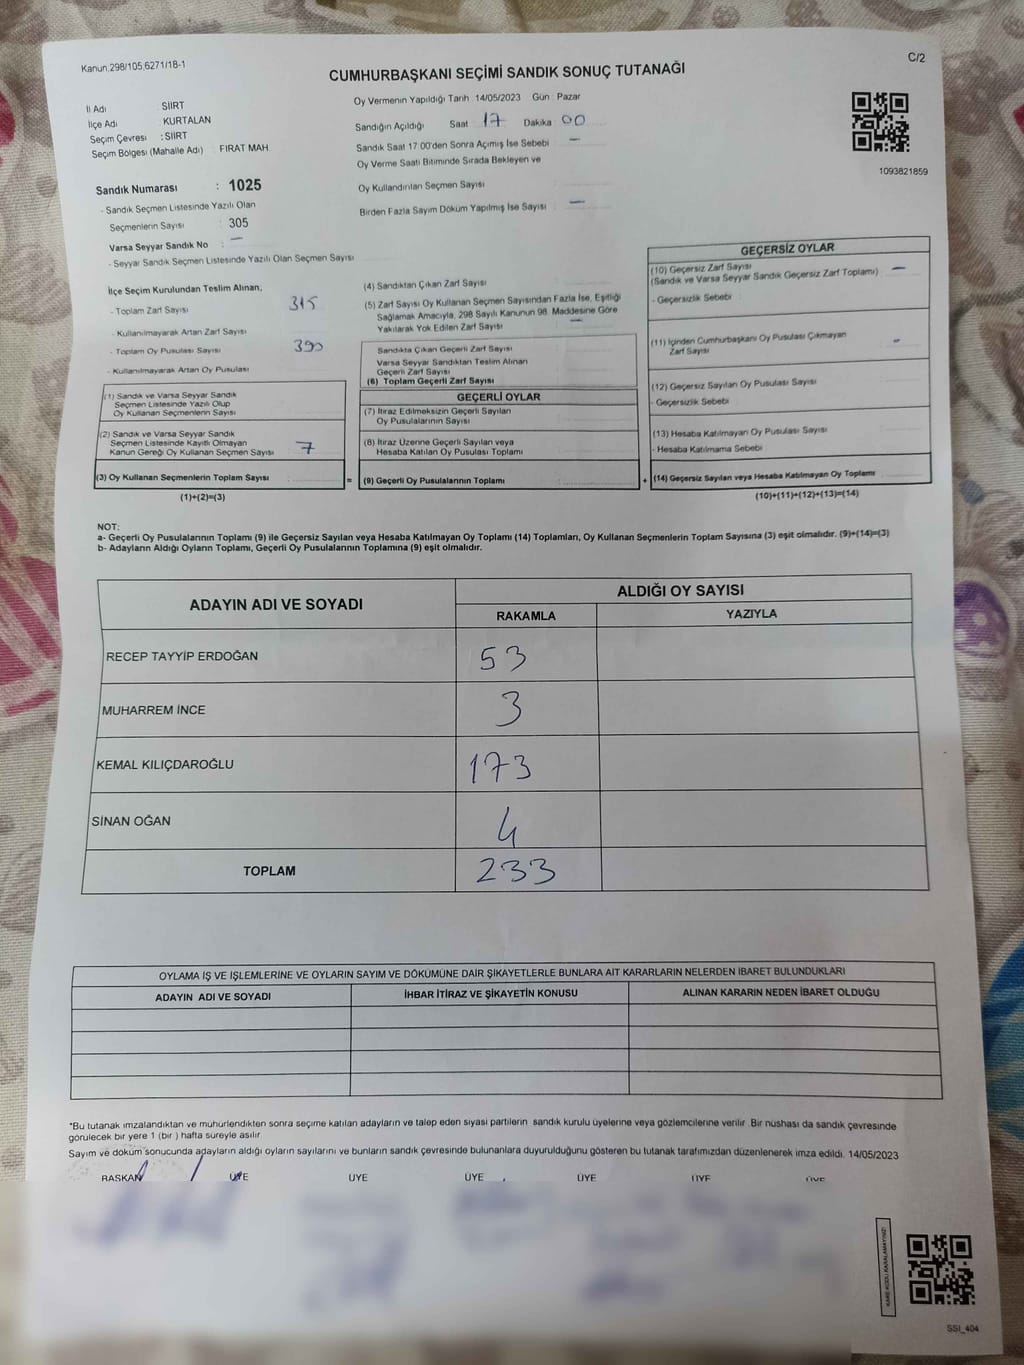 Kanun.298/105,6271/18-1
C/2
CUMHURBAŞKANI SEÇİMİ SANDIK SONUÇ TUTANAĞI
İl Adı SİİRT
İlçe Adı KURTALAN
Seçim Çevresi : SİİRT
Seçim Bölgesi (Mahalle Adı) FIRAT MAH
Sandık Numarası : 1025
- Sandık Seçmen Listesinde Yazılı Olan
Seçmenlerin Sayısı : 305
Varsa Seyyar Sandık No : —
- Seyyar Sandık Seçmen Listesinde Yazılı Olan Seçmen Sayısı
Oy Vermenin Yapıldığı Tarih 14/05/2023 Gün : Pazar
Sandığın Açıldığı Saat 17 Dakika 00
Sandık Saat 17:00'den Sonra Açımış İse Sebebi —
Oy Verme Saati Bitiminde Sırada Bekleyen ve
Oy Kullandırılan Seçmen Sayısı :
Birden Fazla Sayım Döküm Yapılmış İse Sayısı : —
1093821859
İlçe Seçim Kurulundan Teslim Alınan;
- Toplam Zarf Sayısı 315
- Kullanılmayarak Artan Zarf Sayısı
- Toplam Oy Pusulası Sayısı 390
- Kullanılmayarak Artan Oy Pusulası
(1) Sandık ve Varsa Seyyar Sandık
Seçmen Listesinde Yazılı Olup
Oy Kullanan Seçmenlerin Sayısı
(2) Sandık ve Varsa Seyyar Sandık
Seçmen Listesinde Kayıtlı Olmayan
Kanun Gereği Oy Kullanan Seçmen Sayısı 7
(3) Oy Kullanan Seçmenlerin Toplam Sayısı :
(1)+(2)=(3)
(4) Sandıktan Çıkan Zarf Sayısı
(5) Zarf Sayısı Oy Kullanan Seçmen Sayısından Fazla İse, Eşitliği
Sağlamak Amacıyla, 298 Sayılı Kanunun 98. Maddesine Göre
Yakılarak Yok Edilen Zarf Sayısı —
Sandıkta Çıkan Geçerli Zarf Sayısı
Varsa Seyyar Sandıktan Teslim Alınan
Geçerli Zarf Sayısı
(6) Toplam Geçerli Zarf Sayısı
GEÇERLİ OYLAR
(7) İtiraz Edilmeksizin Geçerli Sayılan
Oy Pusulalarının Sayısı
(8) İtiraz Üzerine Geçerli Sayılan veya
Hesaba Katılan Oy Pusulası Toplamı
= (9) Geçerli Oy Pusulalarının Toplamı :
GEÇERSİZ OYLAR
(10) Geçersiz Zarf Sayısı
(Sandık ve Varsa Seyyar Sandık Geçersiz Zarf Toplamı) —
- Geçersizlik Sebebi
(11) İçinden Cumhurbaşkanı Oy Pusulası Çıkmayan
Zarf Sayısı -
(12) Geçersiz Sayılan Oy Pusulası Sayısı
- Geçersizlik Sebebi
(13) Hesaba Katılmayan Oy Pusulası Sayısı
- Hesaba Katılmama Sebebi
+ (14) Geçersiz Sayılan veya Hesaba Katılmayan Oy Toplamı
(10)+(11)+(12)+(13)=(14)
NOT:
a- Geçerli Oy Pusulalarının Toplamı (9) ile Geçersiz Sayılan veya Hesaba Katılmayan Oy Toplamı (14) Toplamları, Oy Kullanan Seçmenlerin Toplam Sayısına (3) eşit olmalıdır. (9)+(14)=(3)
b- Adayların Aldığı Oyların Toplamı, Geçerli Oy Pusulalarının Toplamına (9) eşit olmalıdır.
ADAYIN ADI VE SOYADI ALDIĞI OY SAYISI
RAKAMLA YAZIYLA
RECEP TAYYİP ERDOĞAN 53
MUHARREM İNCE 3
KEMAL KILIÇDAROĞLU 173
SİNAN OĞAN 4
TOPLAM 233
OYLAMA İŞ VE İŞLEMLERİNE VE OYLARIN SAYIM VE DÖKÜMÜNE DAİR ŞİKAYETLERLE BUNLARA AİT KARARLARIN NELERDEN İBARET BULUNDUKLARI
ADAYIN ADI VE SOYADI İHBAR İTİRAZ VE ŞİKAYETİN KONUSU ALINAN KARARIN NEDEN İBARET OLDUĞU
*Bu tutanak imzalandıktan ve mühürlendikten sonra seçime katılan adayların ve talep eden siyasi partilerin sandık kurulu üyelerine veya gözlemcilerine verilir. Bir nüshası da sandık çevresinde
görülecek bir yere 1 (bir ) hafta süreyle asılır.
Sayım ve döküm sonucunda adayların aldığı oyların sayılarını ve bunların sandık çevresinde bulunanlara duyurulduğunu gösteren bu tutanak tarafımızdan düzenlenerek imza edildi. 14/05/2023
BAŞKAN ÜYE ÜYE ÜYE ÜYE ÜYE ÜYE
KARE KODU KARALAMAYINIZ!
SSI_404